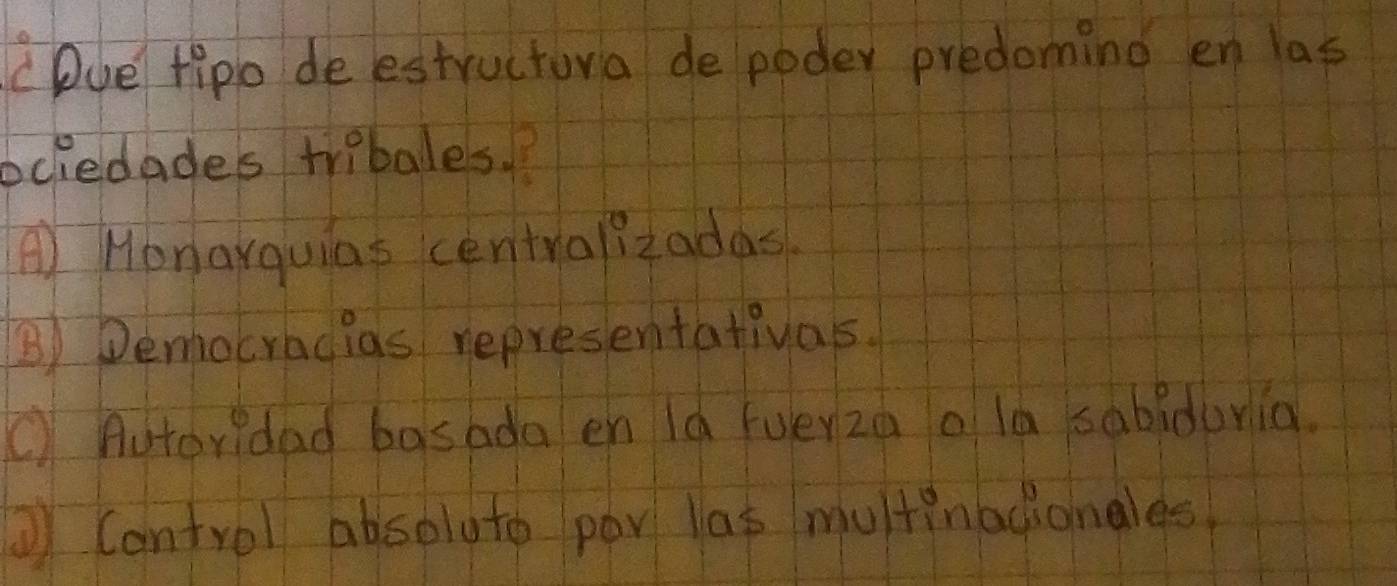 ¿Qué tipo de estructura de poder predominó en las
ociedades tribales.?
A) Monarquías centralizadas.
B) Democracias representativas.
C) Autoridad basada en la fuerza o la sabiduría.
D) Control absoluto por las multinacionales.